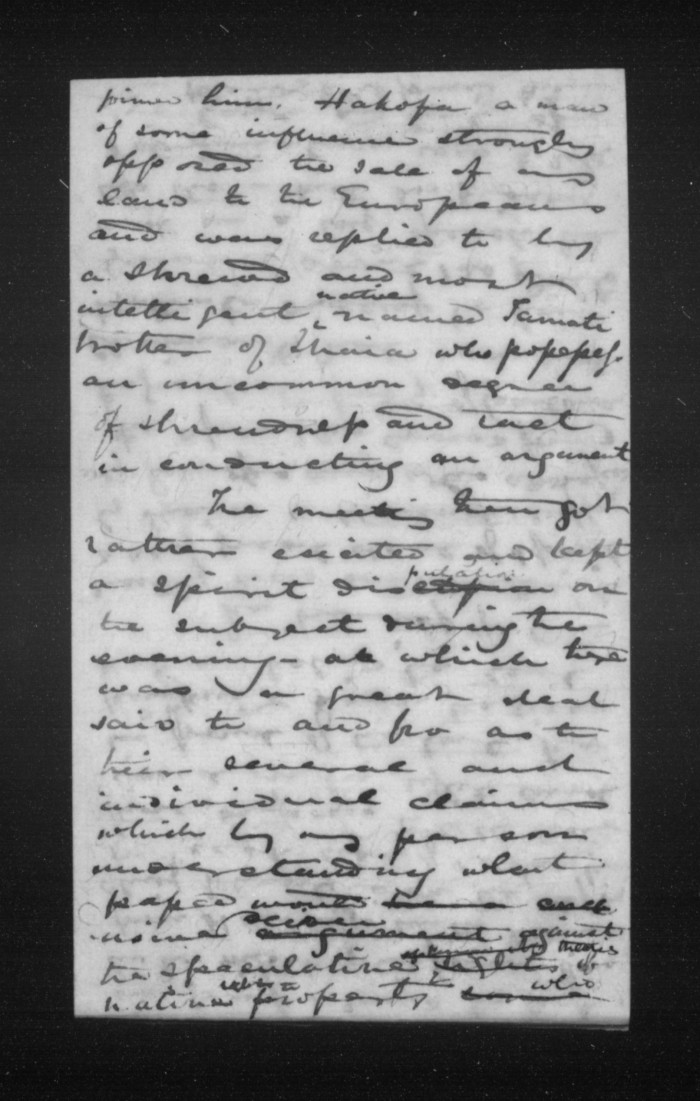 him. Hakopa a man
of some influence strongly
opposed the sale of any
land to the Europeans
and was replied to by
a shrewd and most
intelligent native named Tamati
brother of who possess
an uncommon degree
of shrewdness and tact
in conducting an argument
The meeting then got
rather excited and kept
a spirit on
the subject during the
evening at which there
was a great deal
said to and fro as to
their several and
individual claims
which by any person
understanding what
passed would
against
the speculative rights of
native property to who